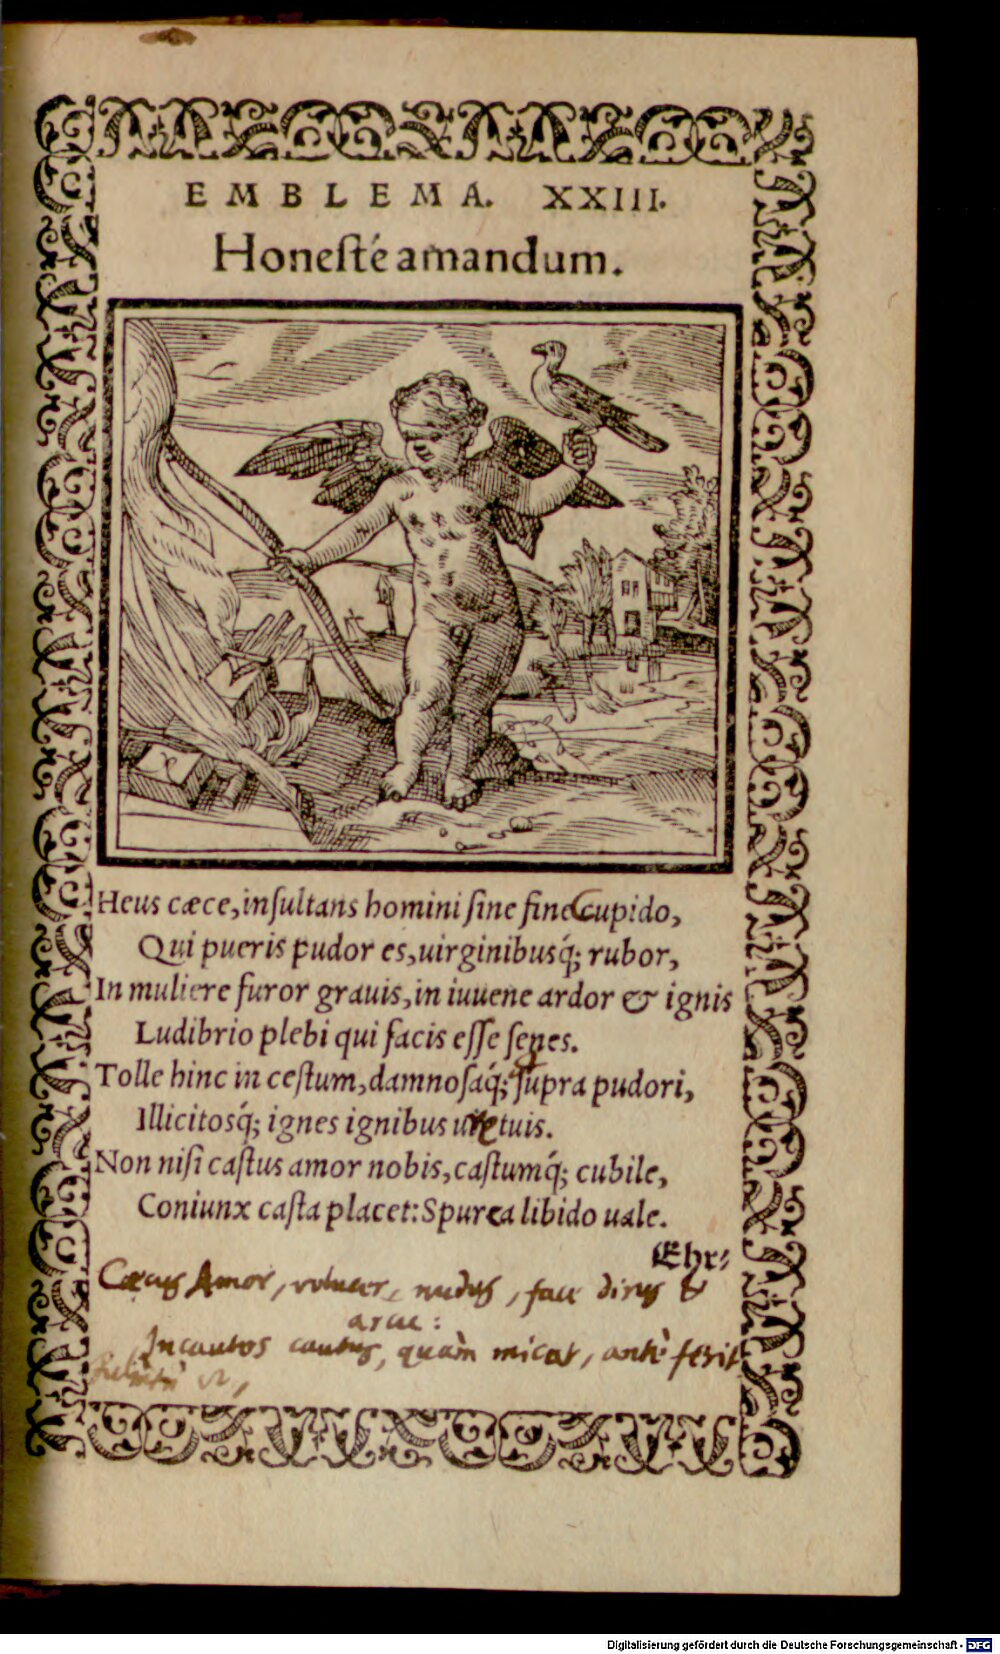 EMBLEMA. XXIII.
Honeſté amandum.
Heus cæce, inſultans homini ſine fine Cupido,
Qui pueris pudor es, uirginibusq́; rubor,
In muliere furor grauis, in iuuene ardor & ignis
Ludibrio plebi qui facis eſſe ſenes.
Tolle hinc in ceſtum, damnoſaq́; ſupra pudori,
Illicitosq́; ignes ignibus ure tuis.
Non niſi caſtus amor nobis, caſtumq́; cubile,
Coniunx caſta placet: Spurca libido uale.
Ehr⸗
Cæcus Amor, volucer, nudus, face dirus &
arcu:
Incautos cautus, quàm micat, antè ferit
Digitalisierung gefördert durch die Deutsche Forschungsgemeinschaft - DFG